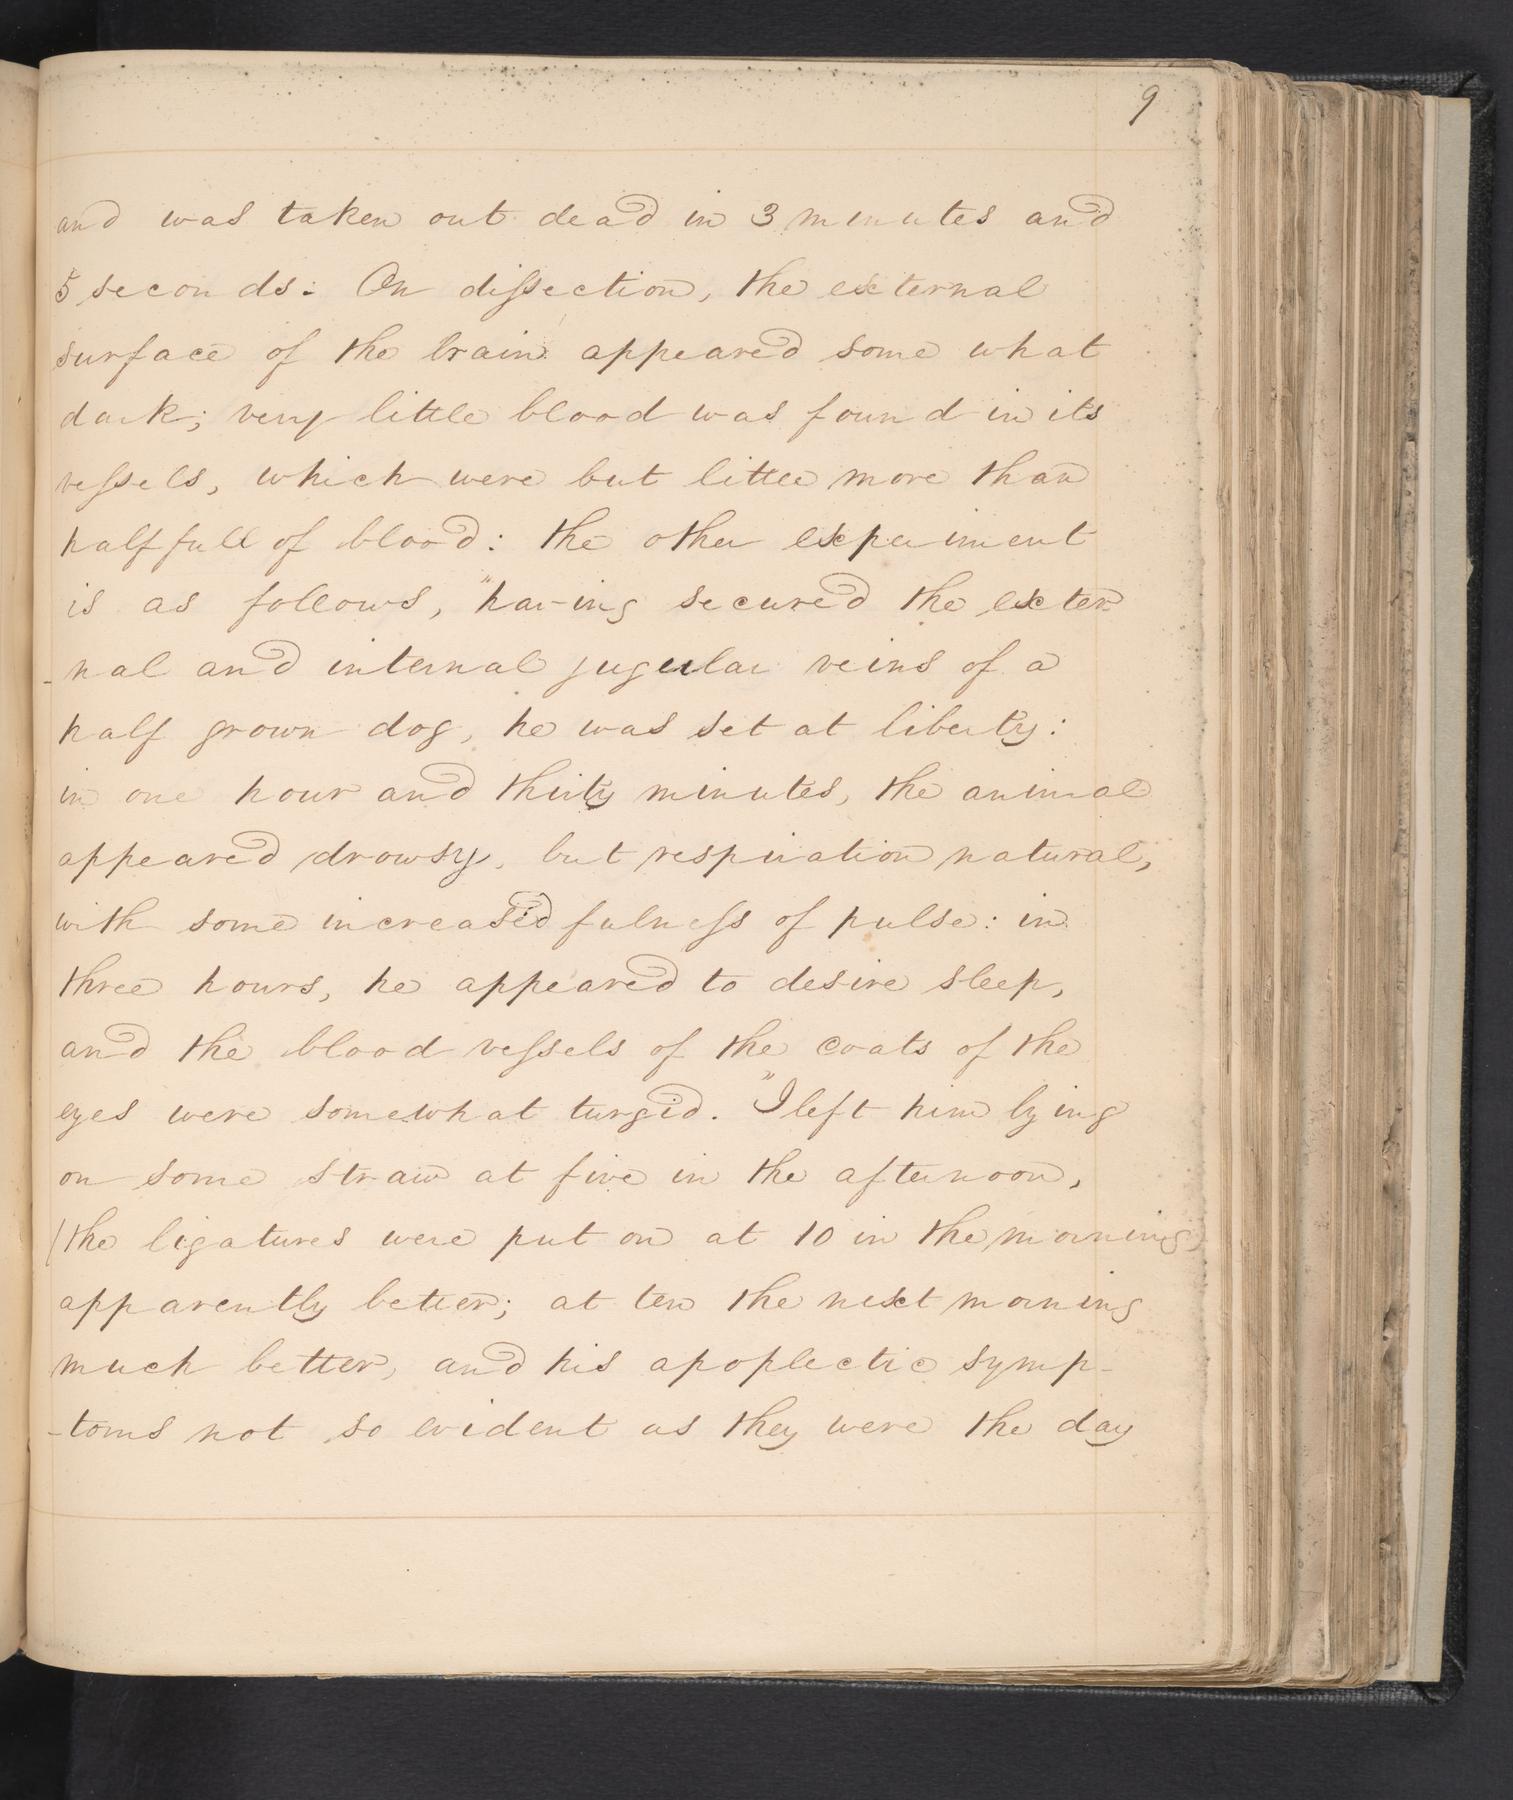 9
and was taken out dead in 3 minutes and
5 seconds: On dissection, the external
surface of the brain appeared some what
dark; very little blood was found in its
vessels, which were but little more than
half full of blood: the other experiment
is as follows, "having secured the exter-
-nal and internal jugular veins of a
half grown dog, he was set at liberty:
in one hour and thirty minutes, the animal
appeared drowsy, but respiration natural,
with some increased fulness of pulse: in
three hours, he appeared to desire sleep,
and the blood vessels of the coats of the
eyes were somewhat turgid. "I left him lying
on some straw at five in the afternoon,
(the ligatures were put on at 10 in the morning)
apparently better; at ten the next morning
much better, and his apoplectic symp-
-toms not so evident as they were the day